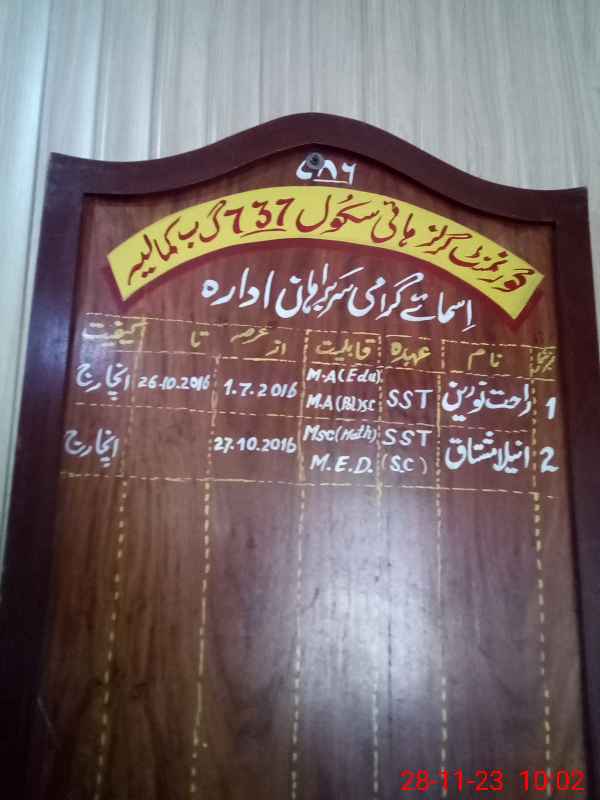 ۷۸۶
گورنمنٹ گرلز ہائی سکول 637/7 گ ب کمالیہ
اسمائے گرامی سربراہان ادارہ
نام عہدہ قابلیت از عرصہ تا کیفیت
1 راحت نورین SST M.A(Edu) 1.7.2016 26.10.2016 انچارج
M.A(Pol)Sc
2 انیلا مشتاق SST Msc(Math) 27.10.2016 انچارج
(SC) M.E.D.
28-11-23 10:02